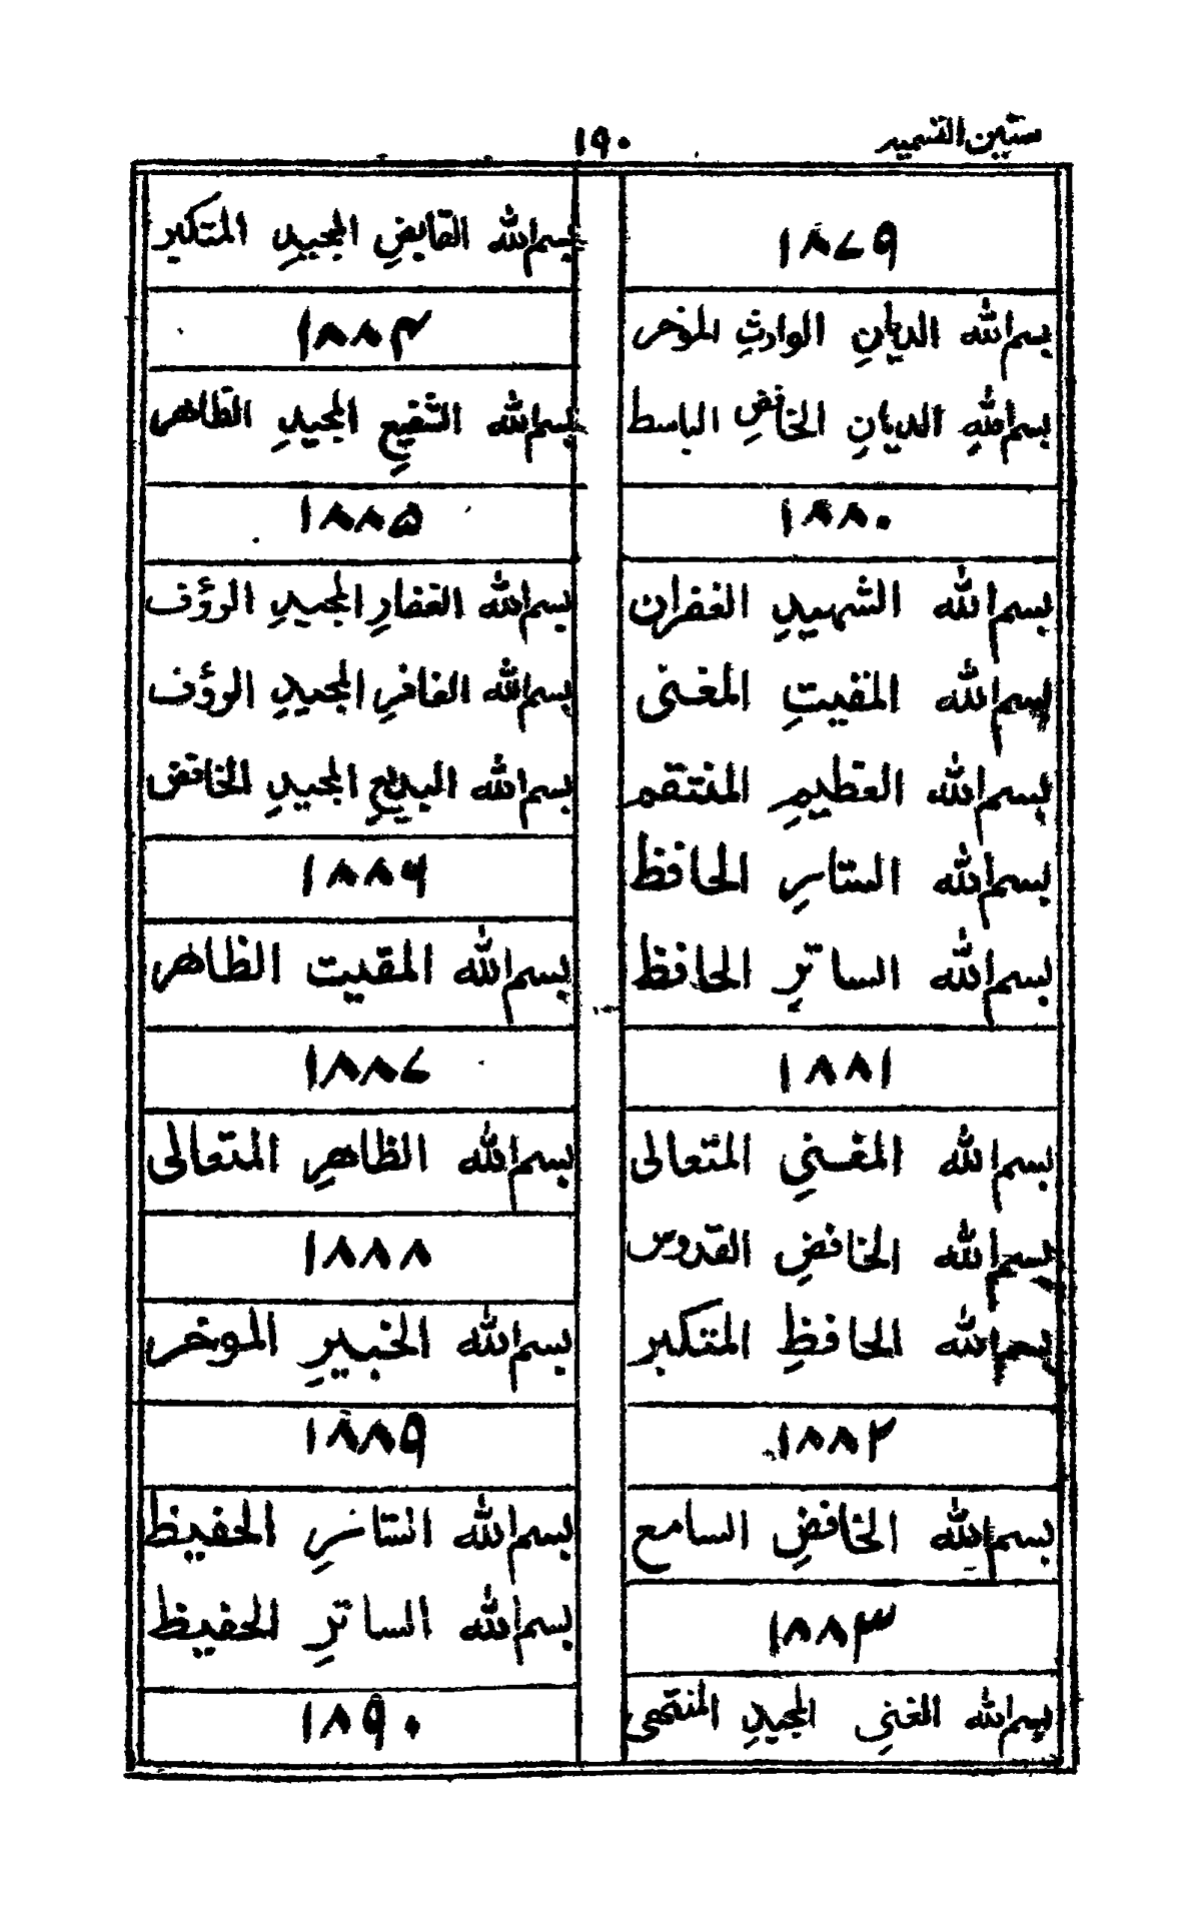 سنین القسمیہ
۱۹۰
۱۸۷۹
بسم الله الدیانِ الوارثِ المؤخر
بسم اللهِ الدیانِ الخافضِ الباسط
۱۸۸۰
بسم الله الشہیدِ الغفران
بسم الله المقیتِ المغنی
بسم الله العظیمِ المنتقم
بسم الله الستارِ الحافظ
بسم الله الساترِ الحافظ
۱۸۸۱
بسم الله المغنیِ المتعالی
بسم الله الخافضِ القدوس
بسم الله الحافظِ المتکبر
۱۸۸۲
بسم الله الخافضِ السامع
۱۸۸۳
بسم الله الغنیِ المجیدِ
بسم الله القابضِ المجیدِ المتکبر
۱۸۸۴
بسم الله الشفیعِ المجیدِ الظاهر
۱۸۸۵
بسم الله الغفارِ المجیدِ الرؤف
بسم الله الغافرِ المجیدِ الرؤف
بسم الله البدیعِ المجیدِ الخافض
۱۸۸۶
بسم الله المقیت الظاهر
۱۸۸۷
بسم الله الظاهرِ المتعالی
۱۸۸۸
بسم الله الخبیرِ الموخر
۱۸۸۹
بسم الله الستارِ الحفیظ
بسم الله الساترِ الحفیظ
۱۸۹۰